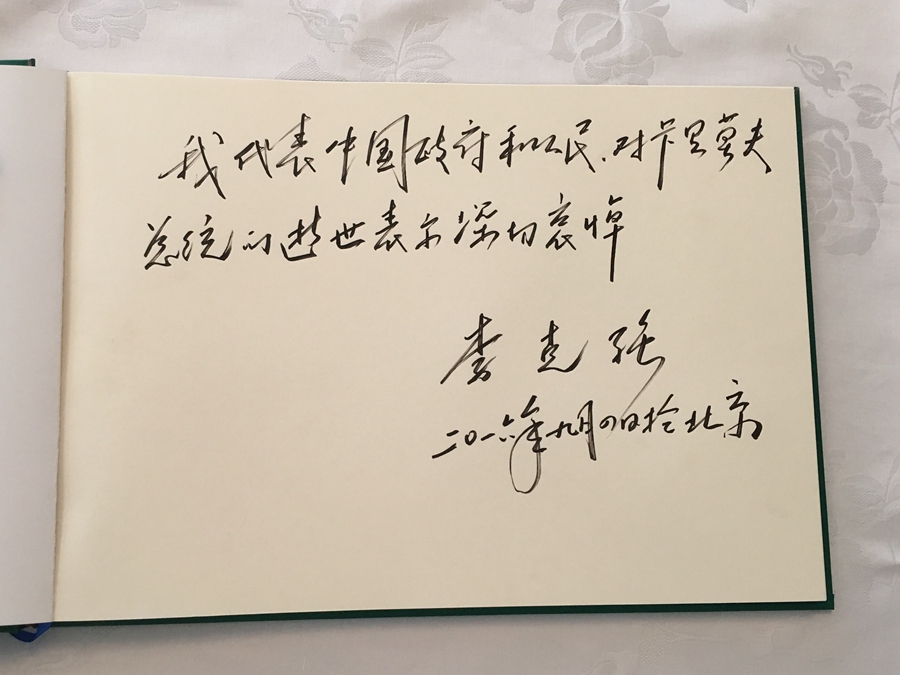 我代表中国政府和人民、对卡里莫夫
总统的逝世表示深切哀悼
李克强
二〇一六年九月四日於北京